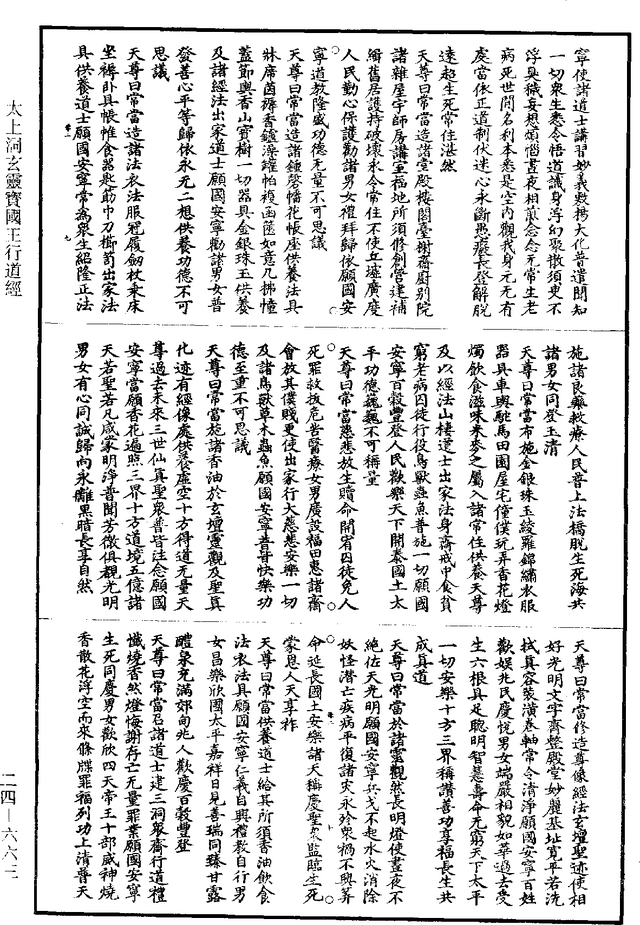 太上洞玄靈寶國王行道經
二四—六六三
寧使諸道士講習妙義敷揚大化普遣聞知
一切衆生悉令悟道識身浮幻聚散須臾不
浮臭穢妄想煩惱晝夜相煎念念無常生老
病死世間名利本悉是空內觀我身元无有
處當依正道制伏迷心永斷愚癡長登解脫
遠超生死常住湛然
天尊曰常當造諸堂殿樓閣臺榭齋厨別院
諸雜屋宇師房講堂福地所須修創營建補
緝舊居護持破壞永令常住不使丘墟廣度
人民勤心保護勸諸男女禮拜歸依願國安
寧道教隆盛功德无量不可思議
天尊曰常當造諸鍾磬幡花帳座供養法具
牀席茵褥香鑪澡罐帕複函篋如意几拂幢
蓋節輿香山寶樹一切器具金銀珠玉供養
及諸經法出家道士願國安寧勸諸男女普
發善心平等歸依永无二想供養功德不可
思議
天尊曰常當造諸法衣法服冠履劒杖東床
坐褥卧具帳帷食器匙筯巾刀櫛笥出家法
具供養道士願國安寧常為衆生紹隆正法
施諸良藥救療人民普上法橋脫生死海共
諸男女同登玉清
天尊曰常當布施金銀珠玉綾羅錦繡衣服
器具車輿駞馬田園屋宅僮僕玩弄香花燈
燭飲食滋味米麥之屬入諸常住供養天尊
及以經法山棲道士出家法身齋戒中食貧
窮老病囚徒行役鳥獸蟲魚普施一切願國
安寧百穀豐登人民歡樂天下開泰國土太
平功德巍巍不可稱量
天尊曰常當慈悲放生贖命開宥囚徒免人
死罪救拔危苦醫療女男廣設福田惠諸齋
會放其僕賤更使出家行大慈悲安樂一切
及諸鳥獸草木蟲魚願國安寧普普快樂功
德至重不可思議
天尊曰常當施諸香油於玄壇靈觀及聖真
化迹有經像處供養虛空十方得道无量天
尊過去未來三世仙真聖衆普皆注念願國
安寧當願香花遍照三界十方道境五億諸
天若聖若凡咸蒙明淨普聞芳徹俱覩光明
男女有心同誠歸向永離黑暗長享自然
天尊曰常當修造尊像經法玄壇聖迹使相
好光明文字齊整殿堂妙麗基址寬平若洗
拭真容裝潢卷軸常令清淨願國安寧百姓
歡娛兆民慶悅男女端嚴相貌如華過去受
生六根具足聰明智慧壽命无窮天下太平
一切安樂十方三界稱讚善功享福長生共
成真道
天尊曰常當於諸靈觀然長明燈使晝夜不
絕佐天光明願國安寧兵戈不起水火消除
妖怪潜亡疾病平復諸灾永殄衆禍不興筭
命延長國土安樂諸天稱慶聖衆監臨生死
蒙恩人天享祚
天尊曰常當供養道士給其所須香油飲食
法衣法具願國安寧仁義自興禮教自行男
女昌樂欣國太平嘉祥日見善瑞同臻甘露
醴泉充滿郊甸兆人歡慶百穀豐登
天尊曰常當召諸道士建三洞衆齋行道禮
懺燒香然燈悔謝存亡无量罪業願國安寧
生死同慶男女歡欣四天帝王十部威神燒
香散花浮空而來條牒罪福列功上清普天